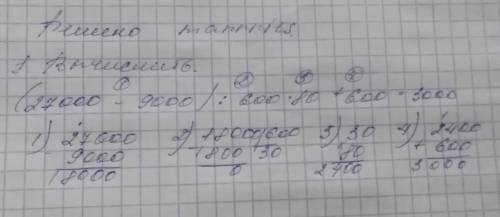 Решено mattries
1 Вычислить.
1 2 3 4
(27000 - 9000) : 600 · 80 + 600 = 3000
1) 27000 2) 18000 600 3) 30 4) 2400
- 9000 1800 30 80 + 600
18000 0 2400 3000